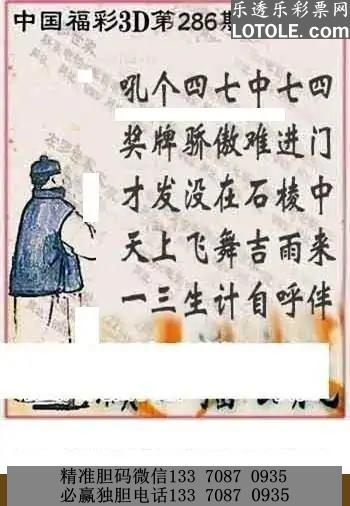 乐透乐彩票网
LOTOLE.COM
中国福彩3D第286期
吼个四七中七四
奖牌骄傲难进门
才发没在石棱中
天上飞舞吉雨来
一三生计自呼伴
精准胆码微信133 7087 0935
必赢独胆电话133 7087 0935